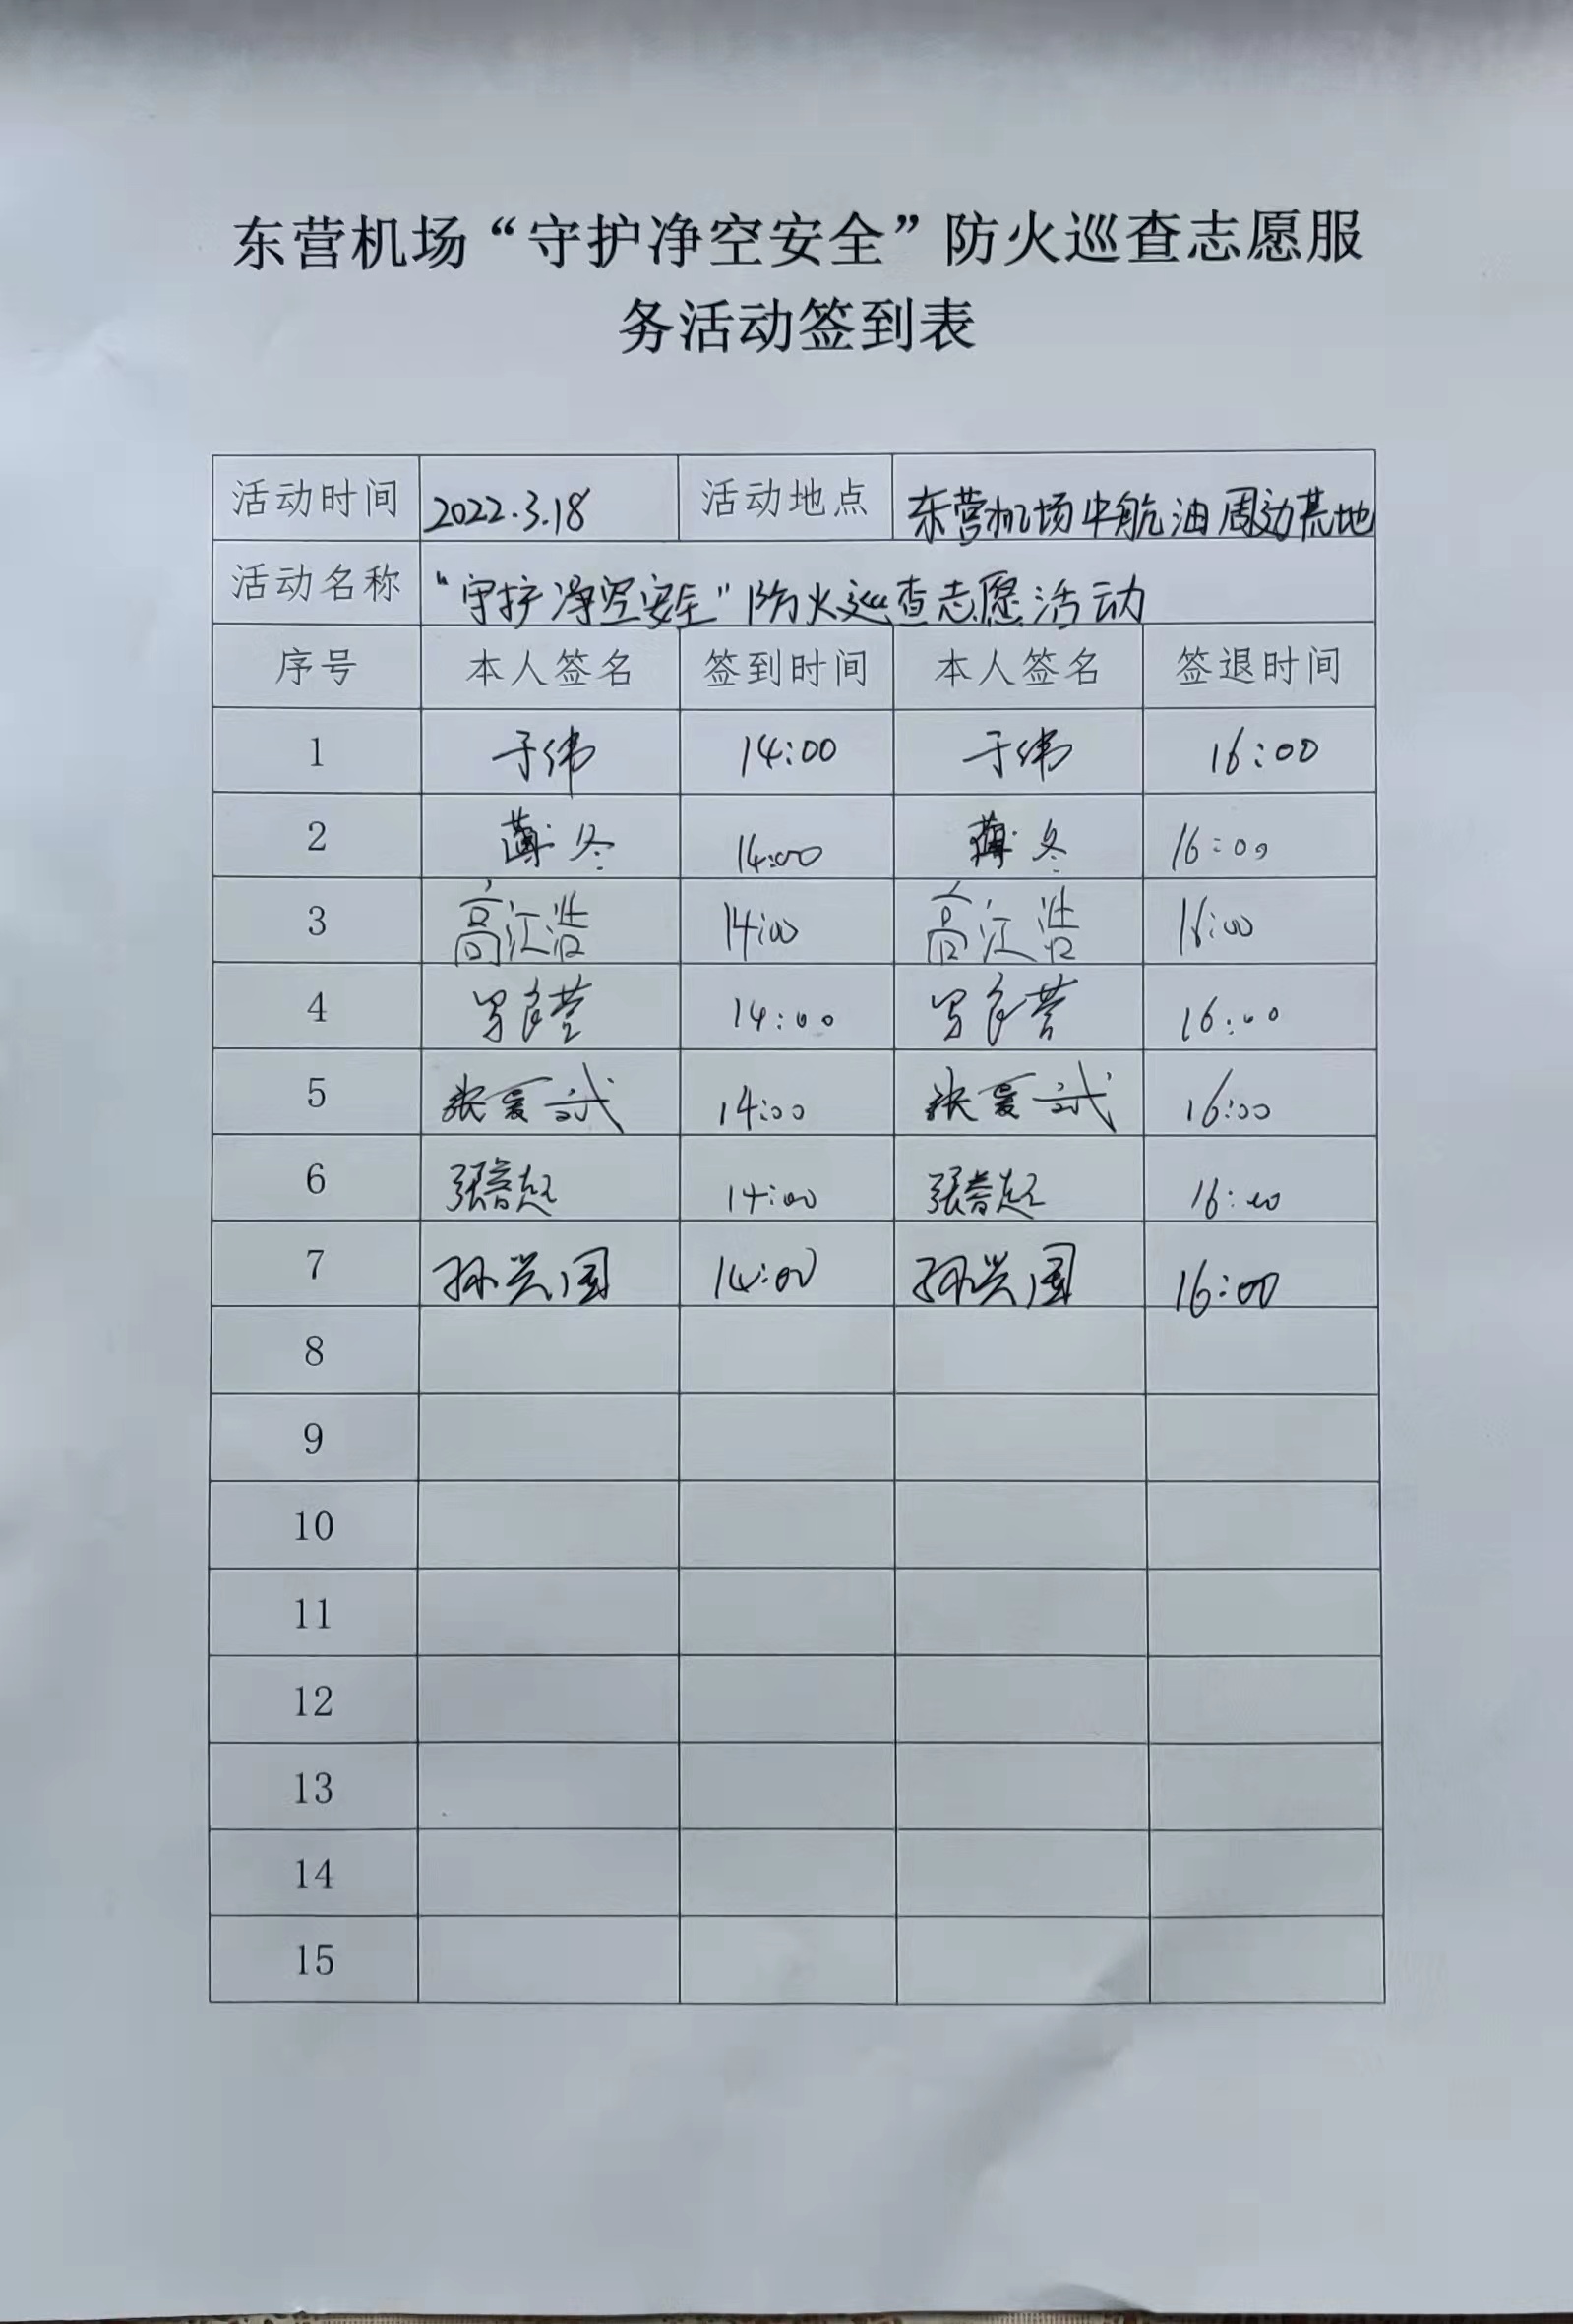 东营机场“守护净空安全”防火巡查志愿服
务活动签到表
活动时间 2022.3.18 活动地点 东营机场中航油周边基地
活动名称 “守护净空安全”防火巡查志愿活动
序号 本人签名 签到时间 本人签名 签退时间
1 于伟 14:00 于伟 16:00
2 薄冬 14:00 薄冬 16:00
3 高江浩 14:00 高江浩 16:00
4 14:00 16:00
5 张夏斌 14:00 张夏斌 16:00
6 张 14:00 张 16:00
7 孙兴国 14:00 孙兴国 16:00
8
9
10
11
12
13
14
15